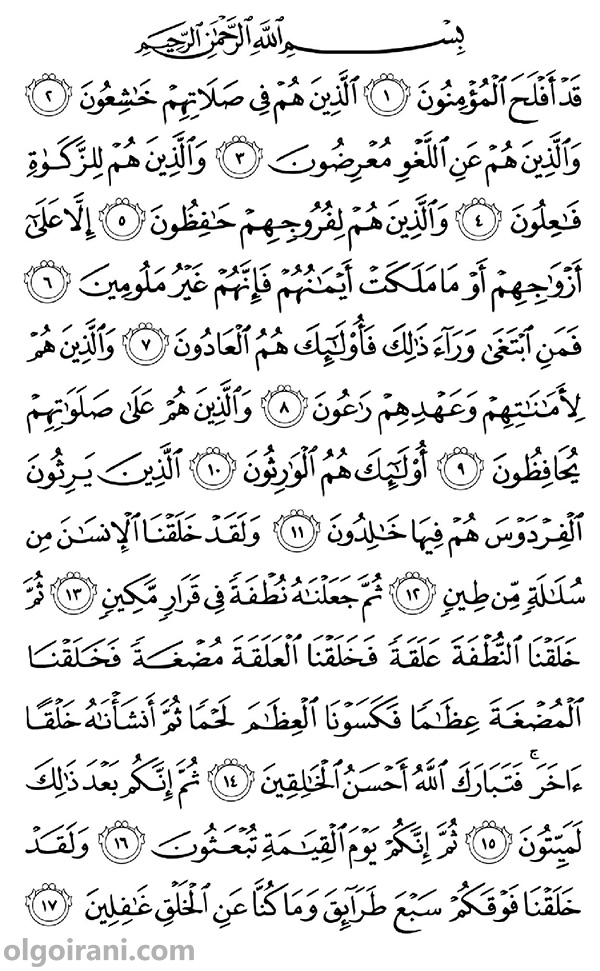 بِسْمِ اللَّهِ الرَّحْمَٰنِ الرَّحِيمِ
قَدْ أَفْلَحَ الْمُؤْمِنُونَ ١ الَّذِينَ هُمْ فِي صَلَاتِهِمْ خَاشِعُونَ ٢
وَالَّذِينَ هُمْ عَنِ اللَّغْوِ مُعْرِضُونَ ٣ وَالَّذِينَ هُمْ لِلزَّكَوٰةِ
فَاعِلُونَ ٤ وَالَّذِينَ هُمْ لِفُرُوجِهِمْ حَافِظُونَ ٥ إِلَّا عَلَىٰٓ
أَزْوَاجِهِمْ أَوْ مَا مَلَكَتْ أَيْمَانُهُمْ فَإِنَّهُمْ غَيْرُ مَلُومِينَ ٦
فَمَنِ ابْتَغَىٰ وَرَآءَ ذَٰلِكَ فَأُولَٰٓئِكَ هُمُ الْعَادُونَ ٧ وَالَّذِينَ هُمْ
لِأَمَانَاتِهِمْ وَعَهْدِهِمْ رَاعُونَ ٨ وَالَّذِينَ هُمْ عَلَىٰ صَلَوَاتِهِمْ
يُحَافِظُونَ ٩ أُولَٰٓئِكَ هُمُ الْوَارِثُونَ ١٠ الَّذِينَ يَرِثُونَ
الْفِرْدَوْسَ هُمْ فِيهَا خَالِدُونَ ١١ وَلَقَدْ خَلَقْنَا الْإِنسَانَ مِن
سُلَالَةٍ مِّن طِينٍ ١٢ ثُمَّ جَعَلْنَاهُ نُطْفَةً فِي قَرَارٍ مَّكِينٍ ١٣ ثُمَّ
خَلَقْنَا النُّطْفَةَ عَلَقَةً فَخَلَقْنَا الْعَلَقَةَ مُضْغَةً فَخَلَقْنَا
الْمُضْغَةَ عِظَامًا فَكَسَوْنَا الْعِظَامَ لَحْمًا ثُمَّ أَنشَأْنَاهُ خَلْقًا
ءَاخَرَ ۚ فَتَبَارَكَ اللَّهُ أَحْسَنُ الْخَالِقِينَ ١٤ ثُمَّ إِنَّكُم بَعْدَ ذَٰلِكَ
لَمَيِّتُونَ ١٥ ثُمَّ إِنَّكُمْ يَوْمَ الْقِيَامَةِ تُبْعَثُونَ ١٦ وَلَقَدْ
خَلَقْنَا فَوْقَكُمْ سَبْعَ طَرَآئِقَ وَمَا كُنَّا عَنِ الْخَلْقِ غَافِلِينَ ١٧
olgoirani.com